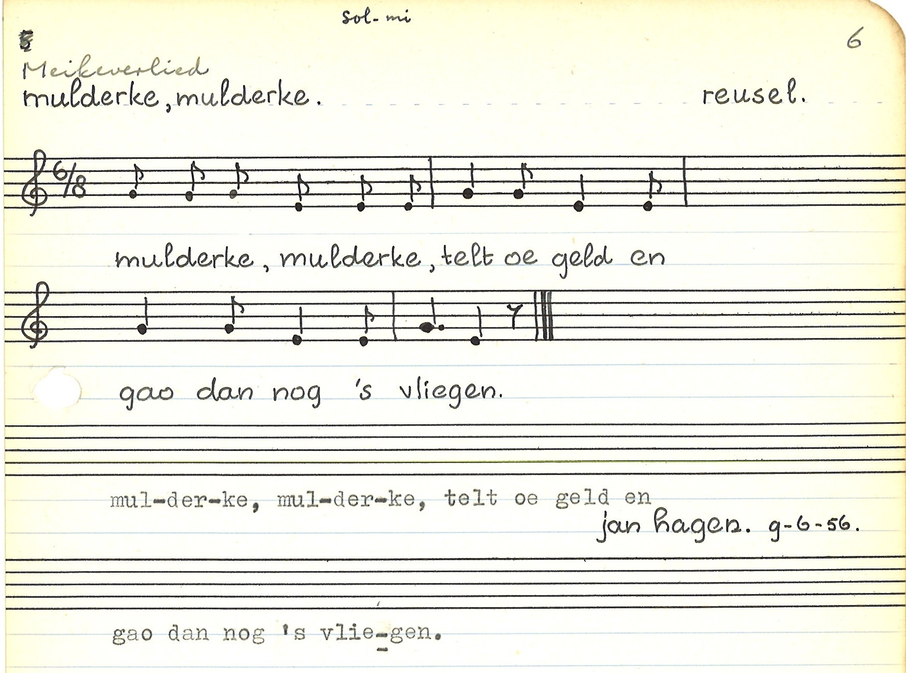 sol-mi
6
Meikeverlied
mulderke, mulderke. reusel.
6/8
mulderke, mulderke, telt oe geld en
gao dan nog 's vliegen.
mul-der-ke, mul-der-ke, telt oe geld en
jan hagen. 9-6-56.
gao dan nog 's vlie-gen.